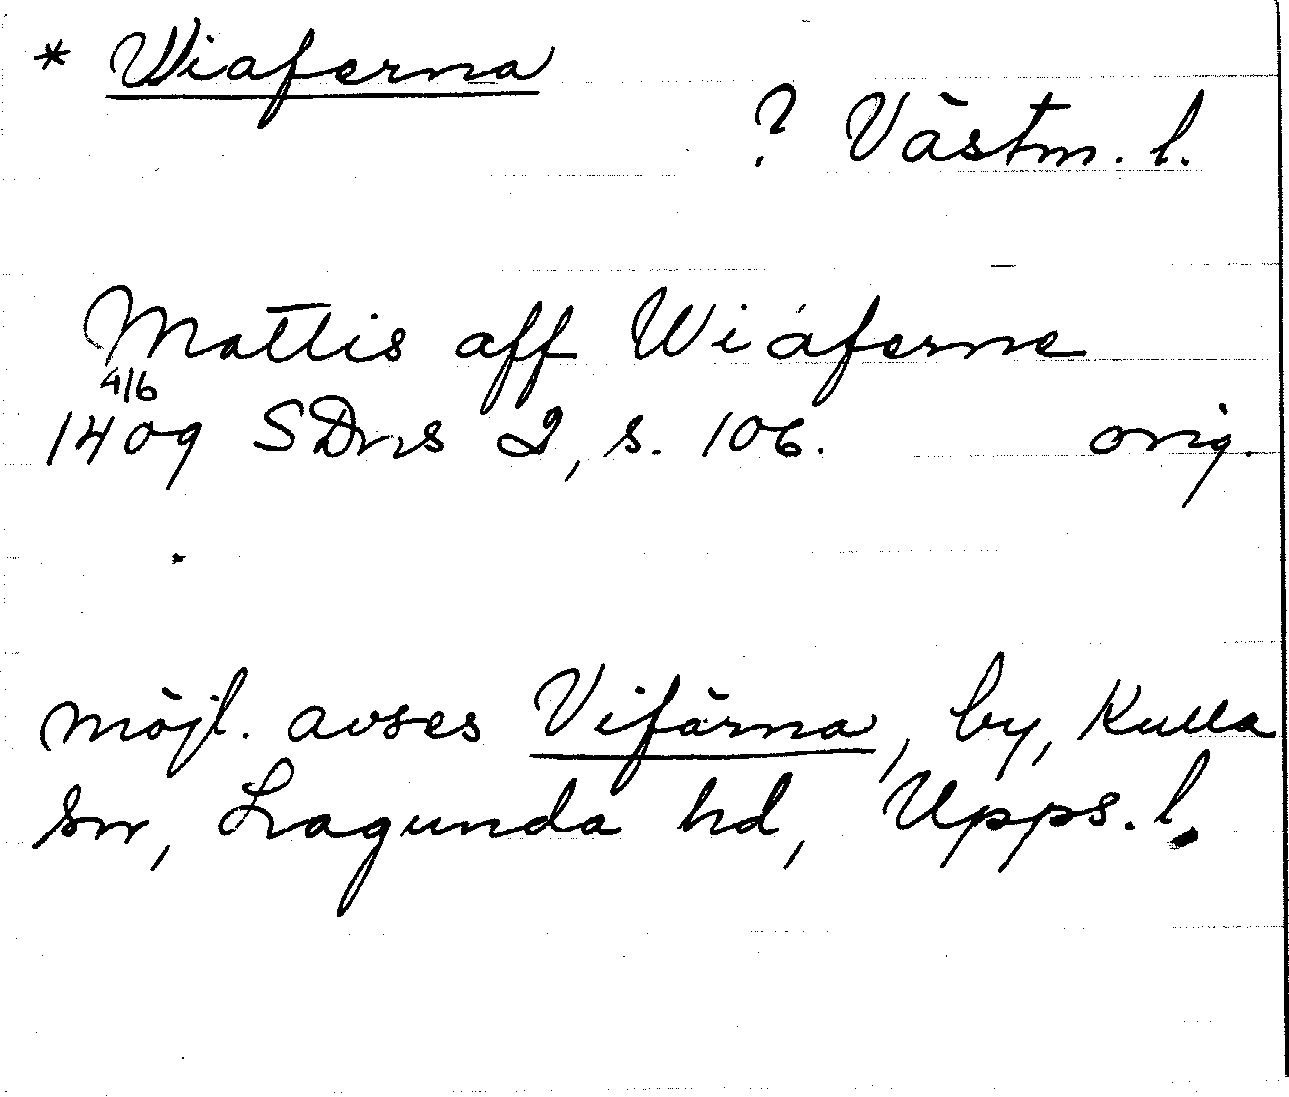 * Wiaferna
? Västm. l.
Mattis aff Wiáferne
4/6
1409 SDns 2, s. 106. orig.
möjl. avses Vifärna, by, Kulla
sn, Lagunda hd, Upps. l.